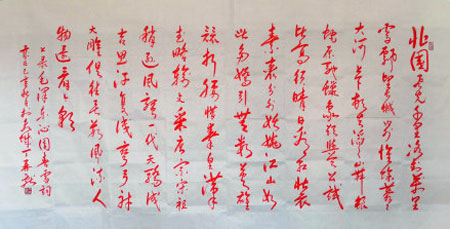 北国风光千里冰封万里
雪飘望长城内外惟余莽
大河上下顿失滔滔山舞银
蛇原驰蜡象欲与天公试
比高须晴日看红装
素裹分外妖娆江山如
此多娇引无数英雄
竞折腰惜秦皇汉
武略输文采唐宗宋祖
稍逊风骚一代天骄成
吉思汗只识弯弓射
大雕俱往矣数风流人
物还看今朝
上录毛泽东沁园春雪词